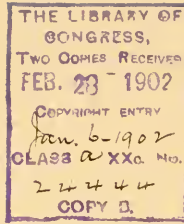 THE LIBRARY OF
CONGRESS,
TWO COPIES RECEIVED
FEB. 28 1902
COPYRIGHT ENTRY
Jan. 6-1902
CLASS a XXc. NO.
24444
COPY B.